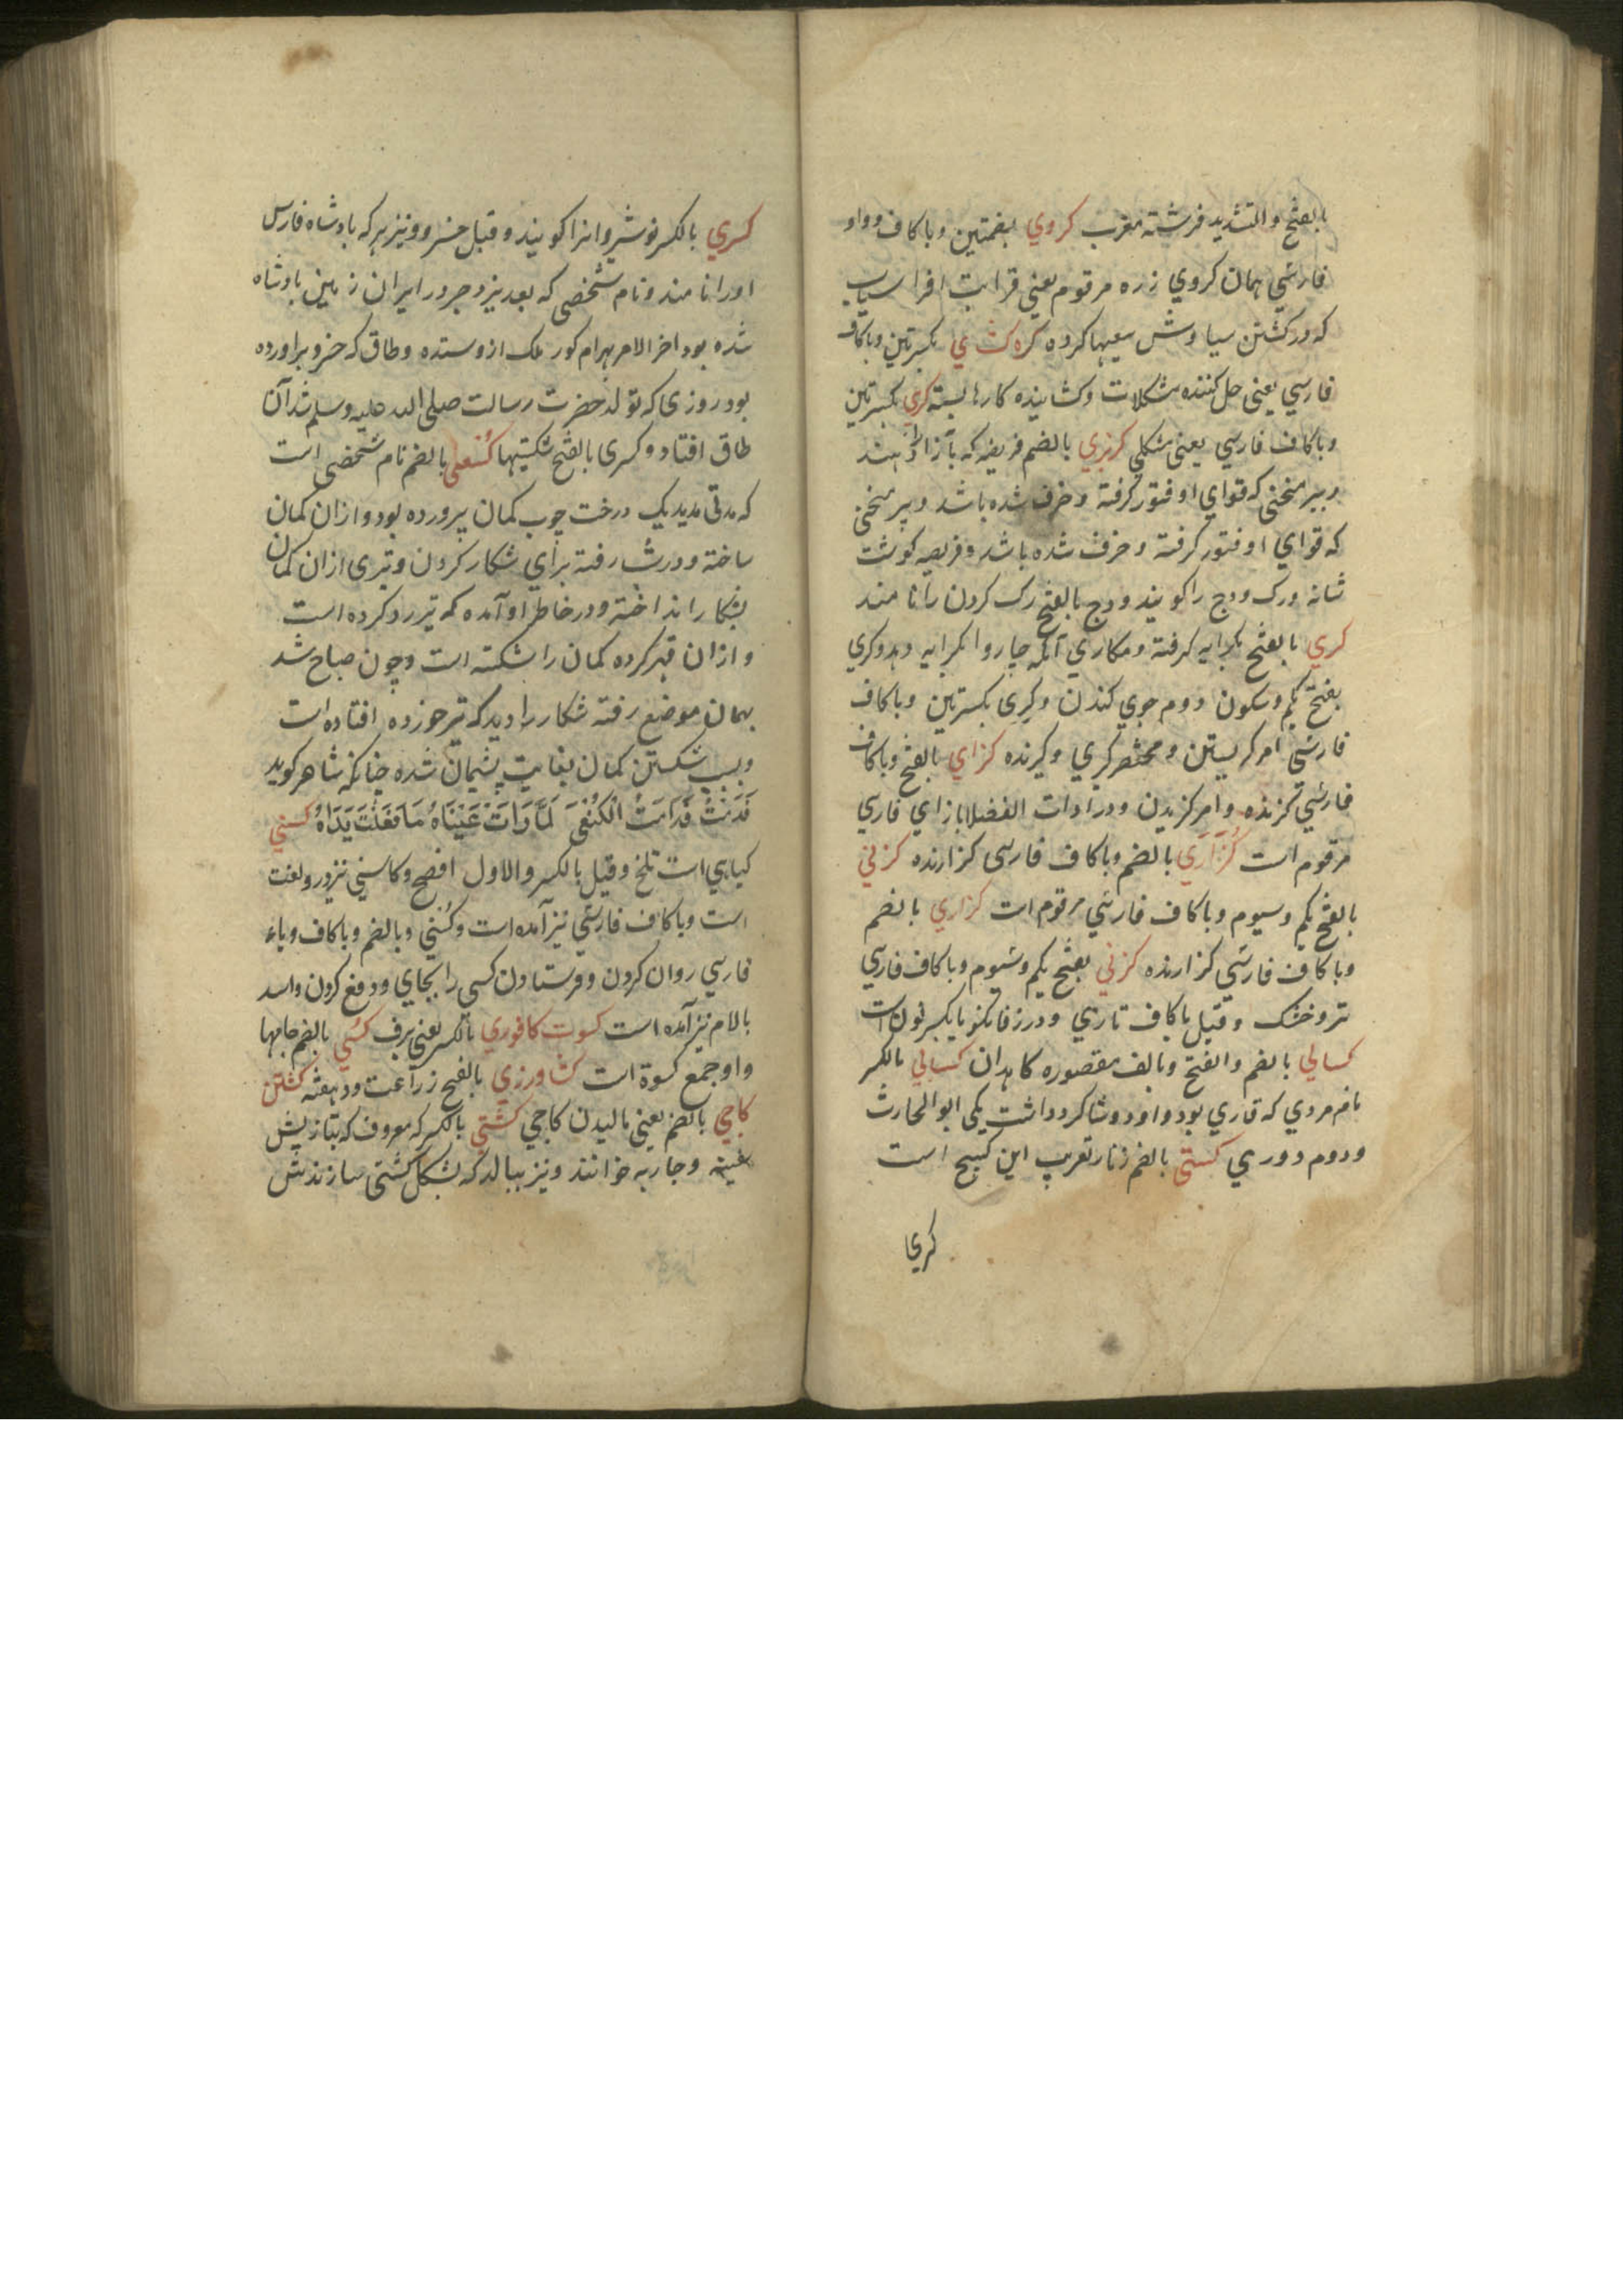 بالفتح والتشدید فرشته مقرب کروي بضمتین وباکاف و واو
فارسي همان کروي زره مرقوم یعني قرابت افراسیاب
که در کشتن سیاوش سعیها کرده کره کشاي بکسرتین وباکاف
فارسي یعنی حل کننده مشکلات وکشاینده کارها بسته کري بکسرتین
وباکاف فارسي یعنی مشکلي کرنري بالضم فریضه که بازار دهند
وپیر منحنی که قواي او فتور کرفته وخرف شده باشد وپیر منحنی
که قواي او فتور کرفته وخرف شده باشد وفریصه کوشت
شانه ورک ودج را کویند وودج بالفتح رک کردن را نامند
کري بالفتح بکرایه کرفته ومکاري آنکه چاروا بکرایه دهد وکري
بفتح یکم وسکون دوم جوي کندن وکري بکسرتین وباکاف
فارسي امر کریستن ومختصر کیري وکیرنده کزاي بالفتح وباکاف
فارسي کزنده وامر کزیدن ودر ادات الفضلا بازاي فارسي
مرقوم است کزاري بالضم وباکاف فارسی کزارنده کزني
بالفتح یکم وسیوم وباکاف فارسي مرقوم است کزاري بالضم
وباکاف فارسي کزارنده کزني بفتح یکم وسیوم وباکاف فارسي
تر وخشک وقیل باکاف تازي ودر زفانکویا بکسر نون است
کسالي بالضم والفتح وبالف مقصوره کاهلان کسایي بالکسر
نام مردي که قاري بود و او دو شاکرد داشت یکی ابو الحارث
ودوم دوري کستی بالضم زنار تعریب این کستیج است
کري
کسري بالکسر نوشیروانرا کویند وقیل خسرو ونیز هر که بادشاه فارس
اورا نامند ونام شخصی که بعد یزدجرد در ایران زمین بادشاه
شده بود اخر الامر بهرام کور ملک ازو ستده وطاق که خسرو براورده
بود روزی که تولد حضرت رسالت صلی الله علیه وسلم شد آن
طاق افتاد وکسری بالفتح شکستیها کسعی بالضم نام شخصی است
که مدتی مدید یک درخت چوب کمان پرورده بود وازان کمان
ساخته ودر شب رفته براي شکار کردن وتیری ازان کمان
بشکار انداخته ودر خاطر او آمده که تیر رد کرده است
وازان قهر کرده کمان را شکسته است وچون صباح شد
بهمان موضع رفته شکار را دید که تیر خورده افتاده است
وبسبب شکستن کمان بغایت پشیمان شده چنانکه شاعر کوید
نَدِمْتُ نَدَامَةَ الْكُسَعِيِّ لَمَّا رَأَتْ عَيْنَاهُ مَا فَعَلَتْ يَدَاهُ کسني
کیاهي است تلخ وقیل بالکسر والاول افصح وکاسني نیز درو لغت
است وباکاف فارسي نیز آمده است وکُسني وبالضم وباکاف وباء
فارسي روان کردن وفرستادن کسی را بجاي ودفع کردن واسد
بالام نیز آمده است کسوت کافوري بالکسر یعني برف کسي بالضم جامها
واو جمع کسوة است کشاورزي بالفتح زراعت ودهقنه کشتن
کاجي بالضم یعني مالیدن کاجي کشتي بالکسر که معروف که بتازیش
سفینه وجاریه خوانند ونیز پیاله که بشکل کشتی سازندش